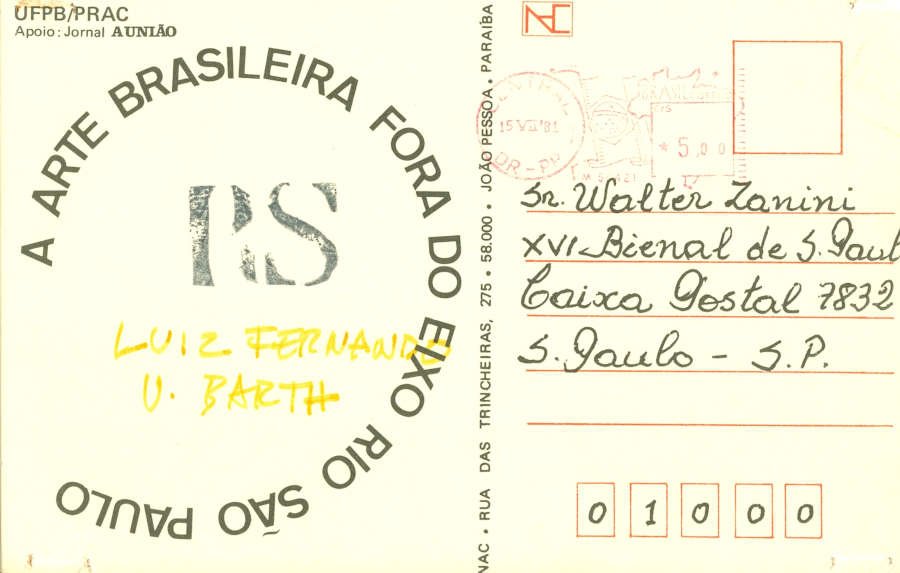 UFPB/PRAC
Apoio: Jornal A UNIÃO
A ARTE BRASILEIRA FORA DO EIXO RIO SÃO PAULO
RS
LUIZ FERNANDO
V. BARTH
NAC • RUA DAS TRINCHEIRAS, 275 • 58.000 • JOÃO PESSOA • PARAÍBA
NAC
CENTRAL
15 VII '81
DR-PB
BRASIL
*5,00
Sr. Walter Zanini
XVI Bienal de S. Paul
Caixa Postal 7832
S. Paulo - S.P.
0 1 0 0 0